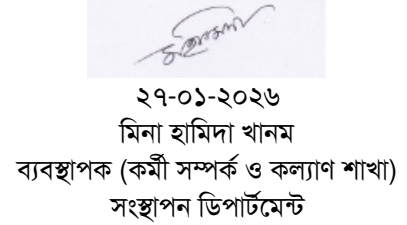 ২৭-০১-২০২৬
মিনা হামিদা খানম
ব্যবস্থাপক (কর্মী সম্পর্ক ও কল্যাণ শাখা)
সংস্থাপন ডিপার্টমেন্ট